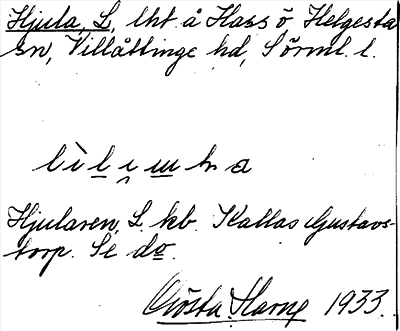 Hjula, L, lht å Hassö Helgesta
sn, Villåttinge hd, Sörml. l.
Hjularen, L kb. Kallas Gustavs-
torp. Se do.
Gösta Harne 1933.